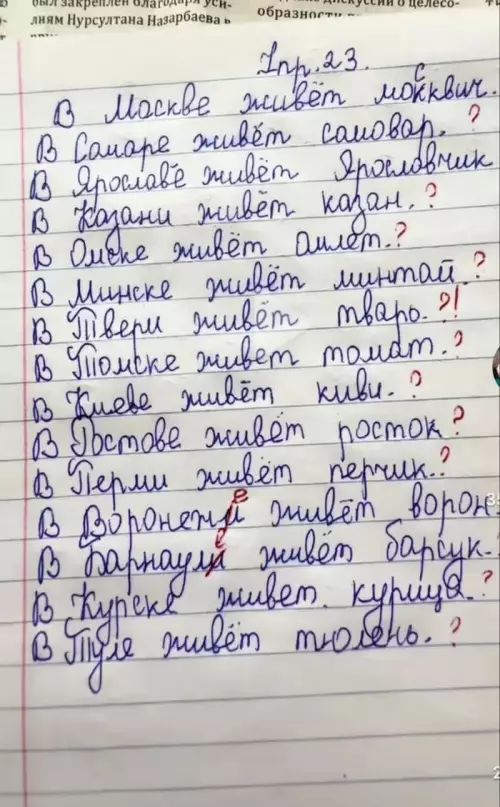 был закреплен благодаря уси-
лиям Нурсултана Назарбаева в
дискуссии о целесо-
образности
Упр. 23.
В Москве живёт москвич.
В Самаре живёт самовар. ?
В Ярославе живёт Ярославчик
В Казани живёт казан. ?
В Омске живёт амлет. ?
В Минске живёт минтай. ?
В Твери живёт тварь. ?!
В Томске живет томат. ?
В Киеве живёт киви. ?
В Ростове живёт росток ?
В Перми живёт перчик. ?
В Воронежи е живёт ворон
В Барнаули е живёт барсук.
В Курске живет курица. ?
В Туле живёт тюлень. ?